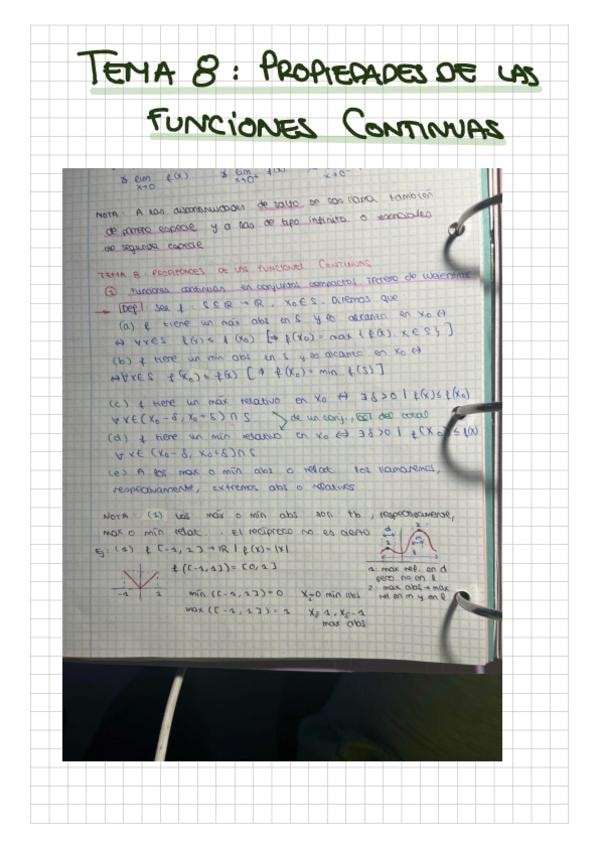 TEMA 8: PROPIEDADES DE LAS
FUNCIONES CONTINUAS
lim f(x) lim f(x)
x→0 x→0⁺ x→0⁻
NOTA: A las discontinuidades de salto se les llama también
de primera especie y a las de tipo infinito o esenciales
de segunda especie
TEMA 8: PROPIEDADES DE LAS FUNCIONES CONTINUAS
① Funciones continuas en conjuntos compactos. Teorema de Weierstrass
→ Def: Sea f: S⊆ℝ→ℝ, x₀∈S. Diremos que
(a) f tiene un máx abs en S y lo alcanza en x₀ ⇔
⇔ ∀x∈S f(x) ≤ f(x₀) [⇒ f(x₀) = max { f(x), x∈S}]
(b) f tiene un min abs en S y lo alcanza en x₀ ⇔
⇔ ∀x∈S f(x₀) ≤ f(x) [⇒ f(x₀) = min f(S)]
(c) f tiene un max relativo en x₀ ⇔ ∃δ>0 | f(x) ≤ f(x₀)
∀x∈(x₀-δ, x₀+δ)∩S de un conj., del total
(d) f tiene un min relativo en x₀ ⇔ ∃δ>0 | f(x₀) ≤ f(x)
∀x∈(x₀-δ, x₀+δ)∩S
(e) A los max o mín abs o relat. los llamaremos,
respectivamente, extremos abs o relativos
NOTA: (1) Los máx o mín abs. son tb, respectivamente,
max o mín relat. El recíproco no es cierto
Ej: (1) f [-1,1]→ℝ | f(x)=|x|
f([-1,1])=[0,1]
-1 1
min ([-1,1])=0 x=0 min abs
max ([-1,1])=1 x=1, x=-1
max abs
d
1 2
1: max rel. en d
pero no en l
2: max abs → max
rel en m y en l